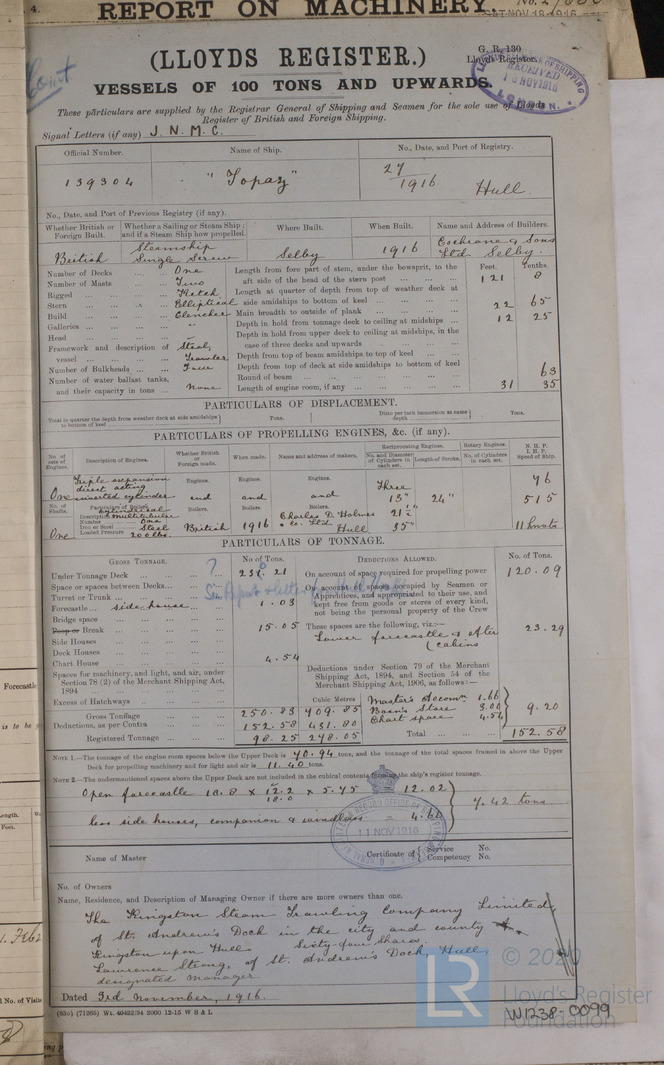 4.
REPORT ON MACHINERY
SAT. NOV. 18 1916
(LLOYDS REGISTER.)
G. R. 130
Lloyds Register.
VESSELS OF 100 TONS AND UPWARDS.
RECEIVED
NOV 1916
LONDON
These particulars are supplied by the Registrar General of Shipping and Seamen for the sole use of Lloyds
Register of British and Foreign Shipping.
Signal Letters (if any) J. N. M. C.
Official Number.
Name of Ship.
No., Date, and Port of Registry.
139304
"Topaz"
27/1916 Hull
No., Date, and Port of Previous Registry (if any).
Whether British or Foreign Built.
Whether a Sailing or Steam Ship; and if a Steam Ship how propelled.
Where Built.
When Built.
Name and Address of Builders.
British
Steamship Single Screw
Selby
1916
Cochrane & Sons Ltd Selby.
Number of Decks ... One
Number of Masts ... Two
Rigged ... Ketch
Stern ... Elliptical
Build ... Clencher
Galleries ... "
Head ... "
Framework and description of vessel ... Steel, Trawler
Number of Bulkheads ... Four
Number of water ballast tanks, and their capacity in tons ... None
Feet. Tenths.
Length from fore part of stem, under the bowsprit, to the aft side of the head of the stern post ... 121 8
Length at quarter of depth from top of weather deck at side amidships to bottom of keel ...
Main breadth to outside of plank ... 22 65
Depth in hold from tonnage deck to ceiling at midships ... 12 25
Depth in hold from upper deck to ceiling at midships, in the case of three decks and upwards ...
Depth from top of beam amidships to top of keel ...
Depth from top of deck at side amidships to bottom of keel ...
Round of beam ... 63
Length of engine room, if any ... 31 35
PARTICULARS OF DISPLACEMENT.
Total to quarter the depth from weather deck at side amidships to bottom of keel Tons.
Ditto per inch immersion at same depth Tons.
PARTICULARS OF PROPELLING ENGINES, &c. (if any).
No. of sets of Engines.
Description of Engines.
Whether British or Foreign made.
When made.
Name and address of makers.
Reciprocating Engines.
No. and Diameter of Cylinders in each set.
Length of Stroke.
Rotary Engines.
No. of Cylinders in each set.
N. H. P.
I. H. P.
Speed of Ship.
One
Triple expansion direct acting inverted cylinder
Engines. Engines. Engines.
and and and
Three
13"
24"
76
515
No. of Shafts.
Particulars of Boilers.
Boilers. Boilers. Boilers.
Description Cylindrical multitubular
Number One
Iron or Steel Steel
Loaded Pressure 200 lbs.
One
British
1916
Charles D. Holmes & Co. Ltd Hull
35"
11 knots
PARTICULARS OF TONNAGE.
GROSS TONNAGE.
No of Tons.
DEDUCTIONS ALLOWED.
No. of Tons.
Under Tonnage Deck ...
Space or spaces between Decks ...
Turret or Trunk ...
Forecastle ... side house ... 1.03
Bridge space ...
Poop or Break ... 15.05
Side Houses
Deck Houses
Chart House ... 4.54
Spaces for machinery, and light, and air, under Section 78 (2) of the Merchant Shipping Act, 1894 ...
Excess of Hatchways ...
Cubic Metres
Gross Tonnage ... 250.83 709.85
Deductions, as per Contra ... 152.58 431.80
Registered Tonnage ... 98.25 278.05
On account of space required for propelling power 120.09
On account of spaces occupied by Seamen or Apprentices, and appropriated to their use, and kept free from goods or stores of every kind, not being the personal property of the Crew
These spaces are the following, viz.:—
Lower forecastle & after cabins 23.29
Deductions under Section 79 of the Merchant Shipping Act, 1894, and Section 54 of the Merchant Shipping Act, 1906, as follows:—
Master's Accomn 1.66
Boson's Store 3.00
Chart space 4.54
9.20
Total ... 152.58
NOTE 1.—The tonnage of the engine room spaces below the Upper Deck is 40.94 tons, and the tonnage of the total spaces framed in above the Upper
Deck for propelling machinery and for light and air is 11.40 tons.
NOTE 2.—The undermentioned spaces above the Upper Deck are not included in the cubical contents forming the ship's register tonnage.
Open forecastle 18.0 × 5.75 = 12.02
less side houses, companion & windlass = 4.60
7.42 tons
11 NOV 1916
Name of Master
Certificate of Service No.
Competency No.
No. of Owners
Name, Residence, and Description of Managing Owner if there are more owners than one.
The Kingston Steam Trawling Company Limited,
of St. Andrew's Dock in the city and county of
Kingston upon Hull Sixty-four Shares.
Lawrence Strong, of St. Andrew's Dock, Hull,
designated manager
Dated 3rd November, 1916.
(85o) (71265) Wt. 40422/34 2000 12-15 W B & L
© 2020
LR
Lloyd's Register
Foundation
W1238-0099
Forecastle
Length.
Feet.
No. of Visits